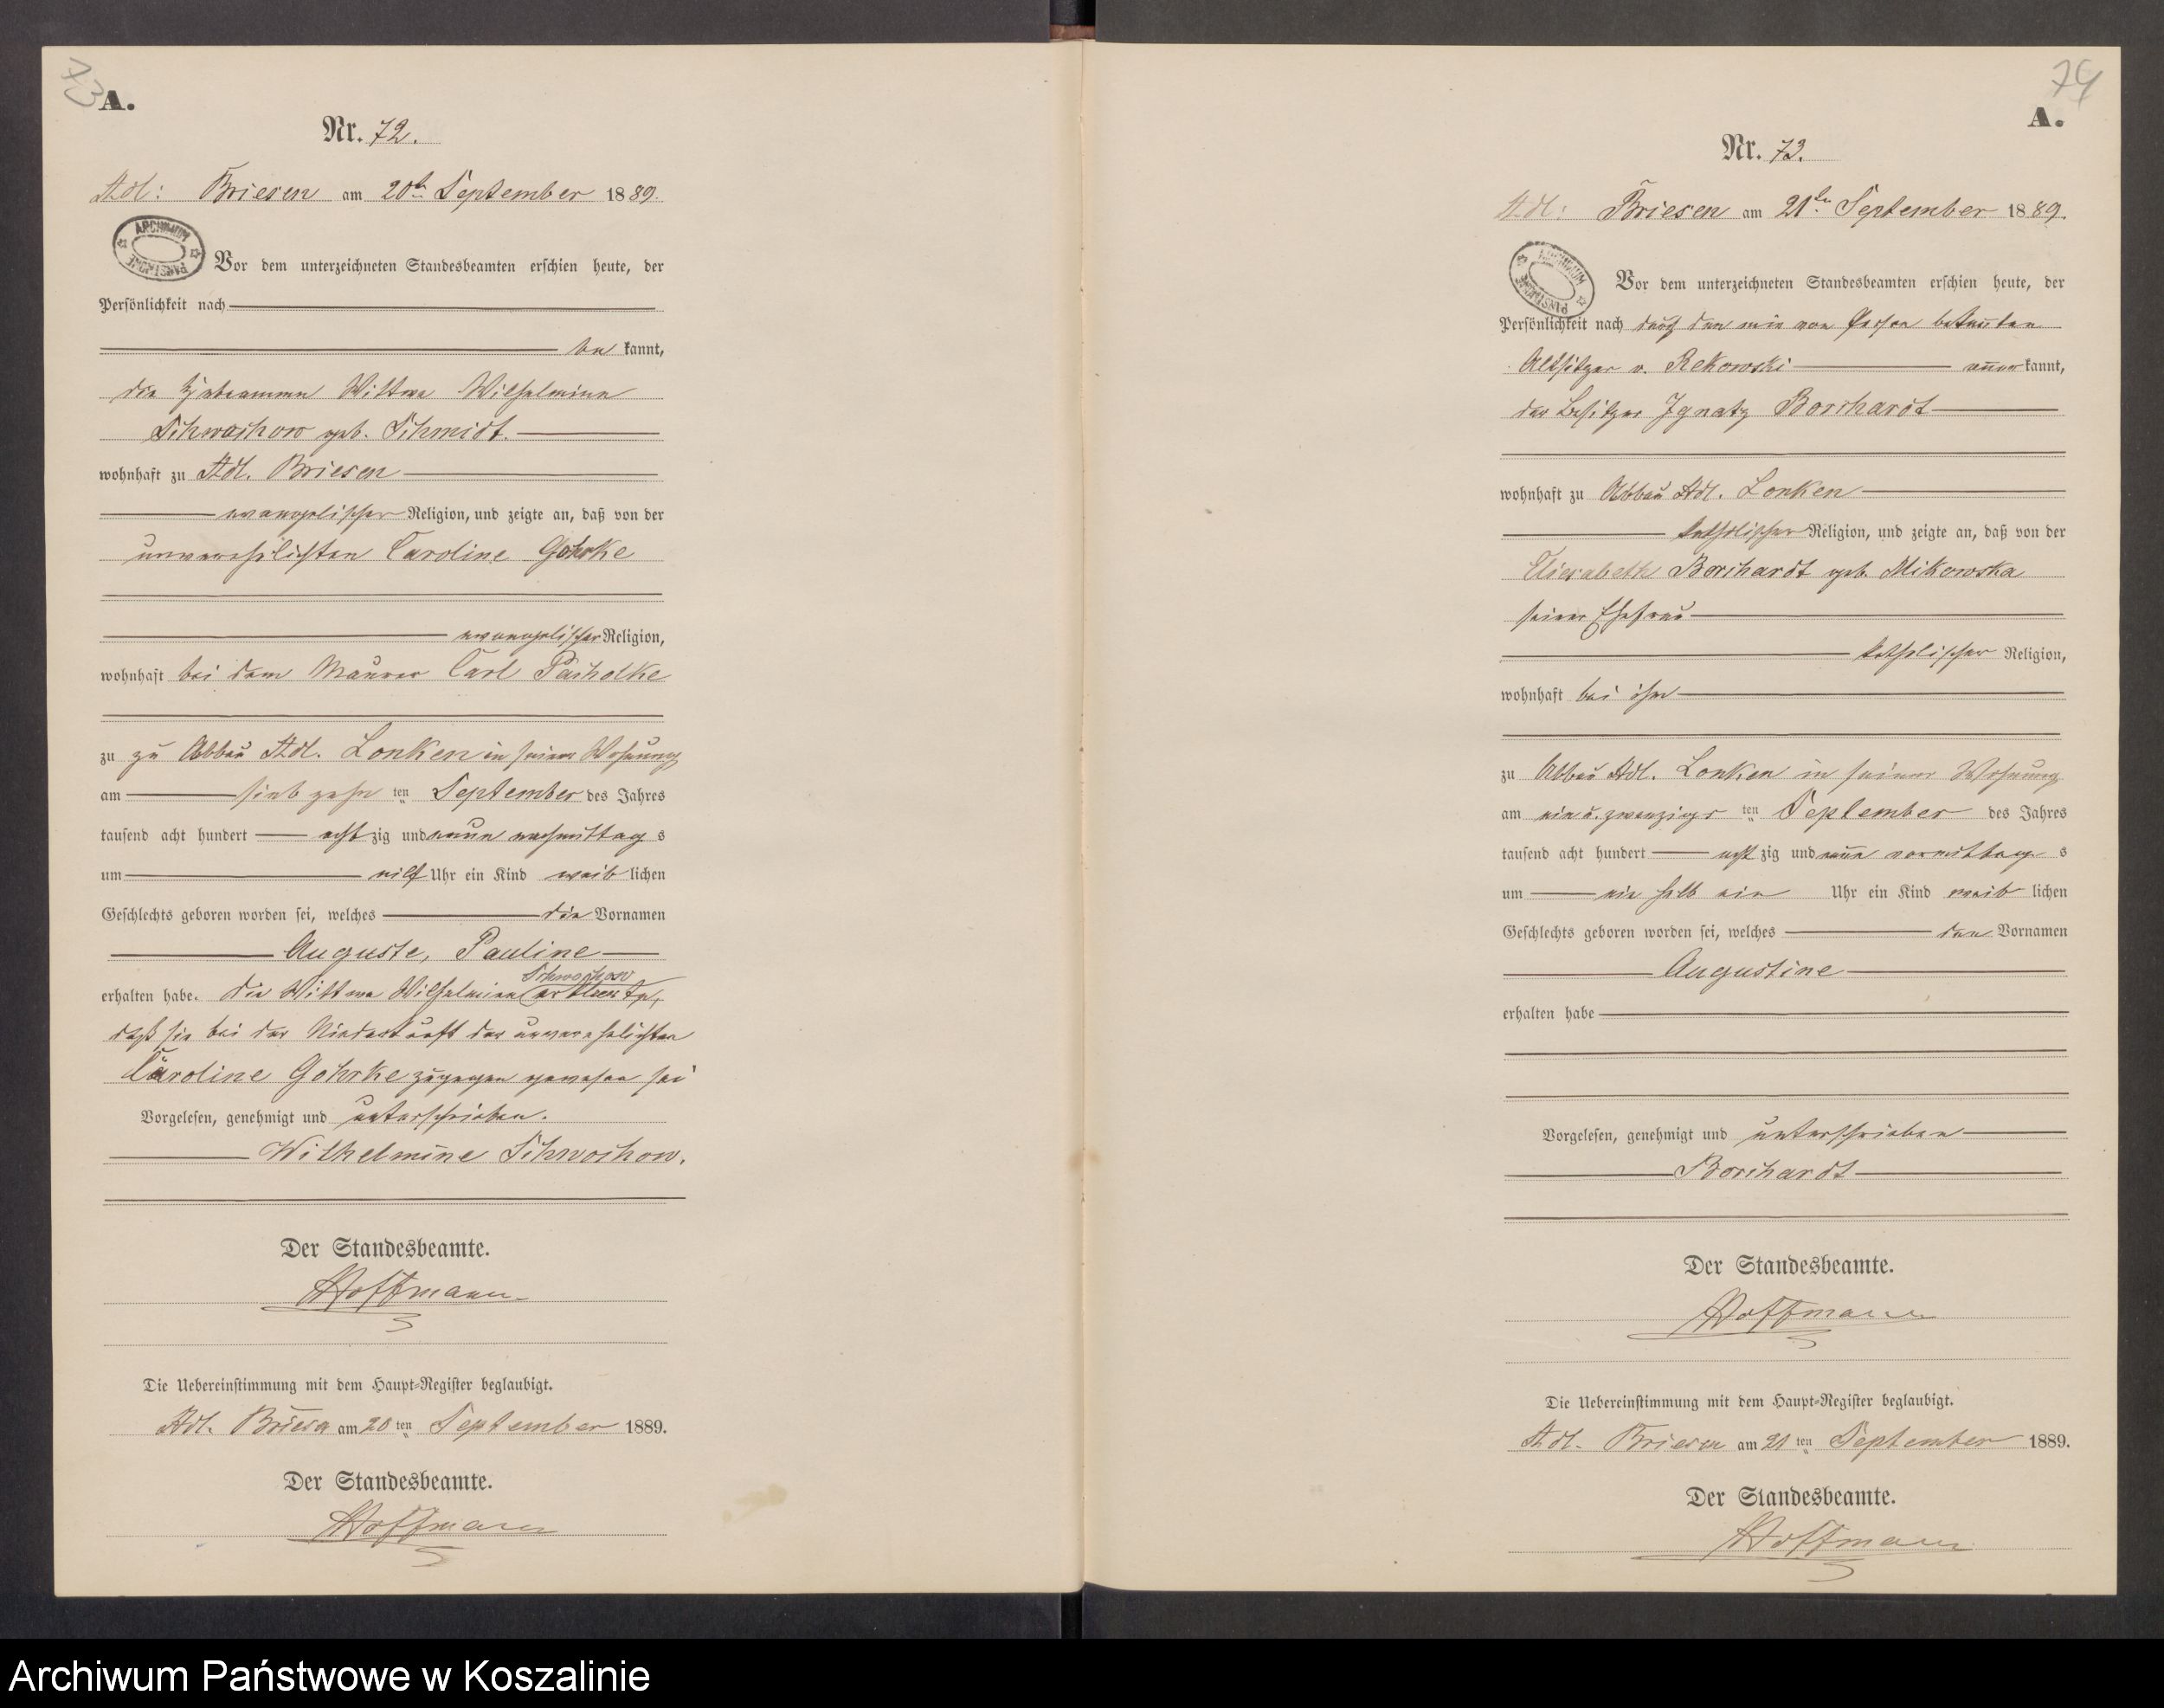 73
A.
Nr. 72.
Adl: Briesen am 20ten September 1889.
ARCHIWUM PAŃSTWOWE
Vor dem unterzeichneten Standesbeamten erschien heute, der
Persönlichkeit nach
be kannt,
die Hebeamme Wittwe Wilhelmine
Schwochow geb. Schmidt.
wohnhaft zu Adl. Briesen
evangelischer Religion, und zeigte an, daß von der
unverehelichten Caroline Gohrke
evangelischer Religion,
wohnhaft bei dem Maurer Carl Pacholke
zu zu Abbau Adl. Lonken in seiner Wohnung
am siebzehn ten September des Jahres
tausend acht hundert acht zig und neun nachmittag s
um elf Uhr ein Kind weib lichen
Geschlechts geboren worden sei, welches die Vornamen
Auguste, Pauline
erhalten habe. Die Wittwe Wilhelmine Schwochow erklärte,
daß sie bei der Niederkunft der unverehelichten
Caroline Gohrke zugegen gewesen sei
Vorgelesen, genehmigt und unterschrieben.
Wilhelmine Schwochow.
Der Standesbeamte.
Hoffmann
Die Uebereinstimmung mit dem Haupt-Register beglaubigt.
Adl. Briesen am 20 ten September 1889.
Der Standesbeamte.
Hoffmann
74
A.
Nr. 73.
Adl: Briesen am 21ten September 1889.
ARCHIWUM PAŃSTWOWE
Vor dem unterzeichneten Standesbeamten erschien heute, der
Persönlichkeit nach durch den mir von Person bekannten
Altsitzer v. Rekowski anerkannt,
der Besitzer Ignatz Borchardt
wohnhaft zu Abbau Adl. Lonken
katholischer Religion, und zeigte an, daß von der
Elisabeth Borchardt geb. Mikowska
seiner Ehefrau
katholischer Religion,
wohnhaft bei ihm
zu Abbau Adl. Lonken in seiner Wohnung
am ein u. zwanzigs ten September des Jahres
tausend acht hundert acht zig und neun vormittag s
um ein halb ein Uhr ein Kind weib lichen
Geschlechts geboren worden sei, welches den Vornamen
Augustine
erhalten habe
Vorgelesen, genehmigt und unterschrieben
Borchardt
Der Standesbeamte.
Hoffmann
Die Uebereinstimmung mit dem Haupt-Register beglaubigt.
Adl. Briesen am 21 ten September 1889.
Der Standesbeamte.
Hoffmann
Archiwum Państwowe w Koszalinie